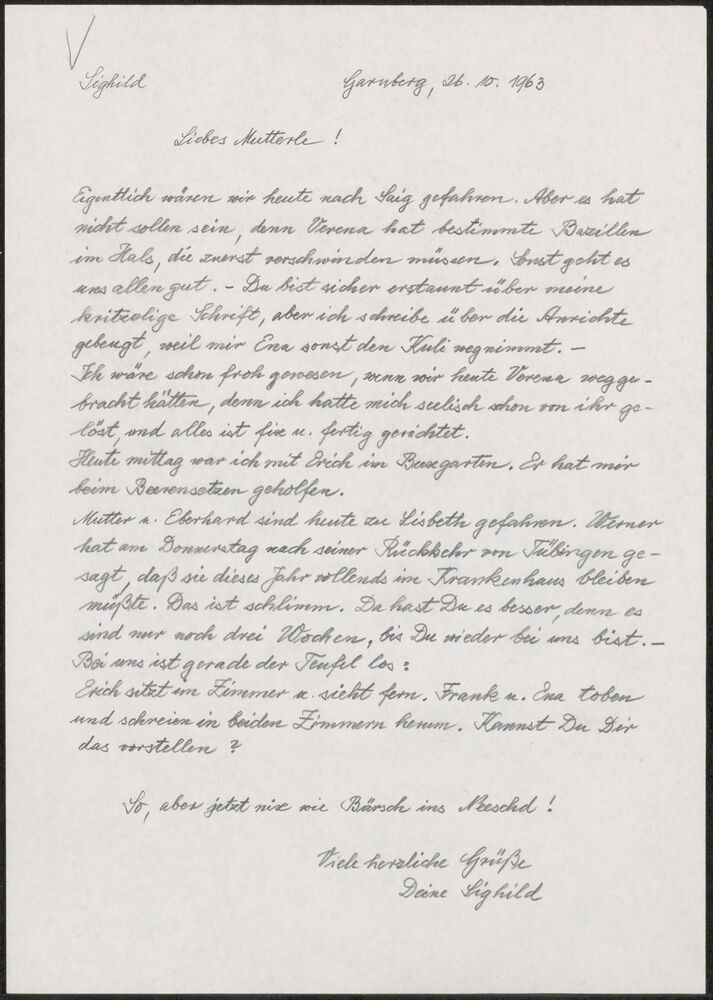 Sighild
Garnberg, 26. 10. 1963
Liebes Mutterle !
Eigentlich wären wir heute nach Saig gefahren. Aber es hat
nicht sollen sein, denn Verena hat bestimmte Bazillen
im Hals, die zuerst verschwinden müssen. Sonst geht es
uns allen gut. - Du bist sicher erstaunt über meine
kritzelige Schrift, aber ich schreibe über die Anrichte
gebeugt, weil mir Ena sonst den Kuli wegnimmt. -
Ich wäre schon froh gewesen, wenn wir heute Verena wegge-
bracht hätten, denn ich hatte mich seelisch schon von ihr ge-
löst, und alles ist fix u. fertig gerichtet.
Heute mittag war ich mit Erich im Buxgarten. Er hat mir
beim Beerensetzen geholfen.
Mutter u. Eberhard sind heute zu Lisbeth gefahren. Werner
hat am Donnerstag nach seiner Rückkehr von Tübingen ge-
sagt, daß sie dieses Jahr vollends im Krankenhaus bleiben
müßte. Das ist schlimm. Da hast Du es besser, denn es
sind nur noch drei Wochen, bis Du wieder bei uns bist. -
Bei uns ist gerade der Teufel los :
Erich sitzt im Zimmer u. sieht fern. Frank u. Ena toben
und schreien in beiden Zimmern herum. Kannst Du Dir
das vorstellen ?
So, aber jetzt nix wie Bärsch ins Neeschd !
Viele herzliche Grüße
Deine Sighild